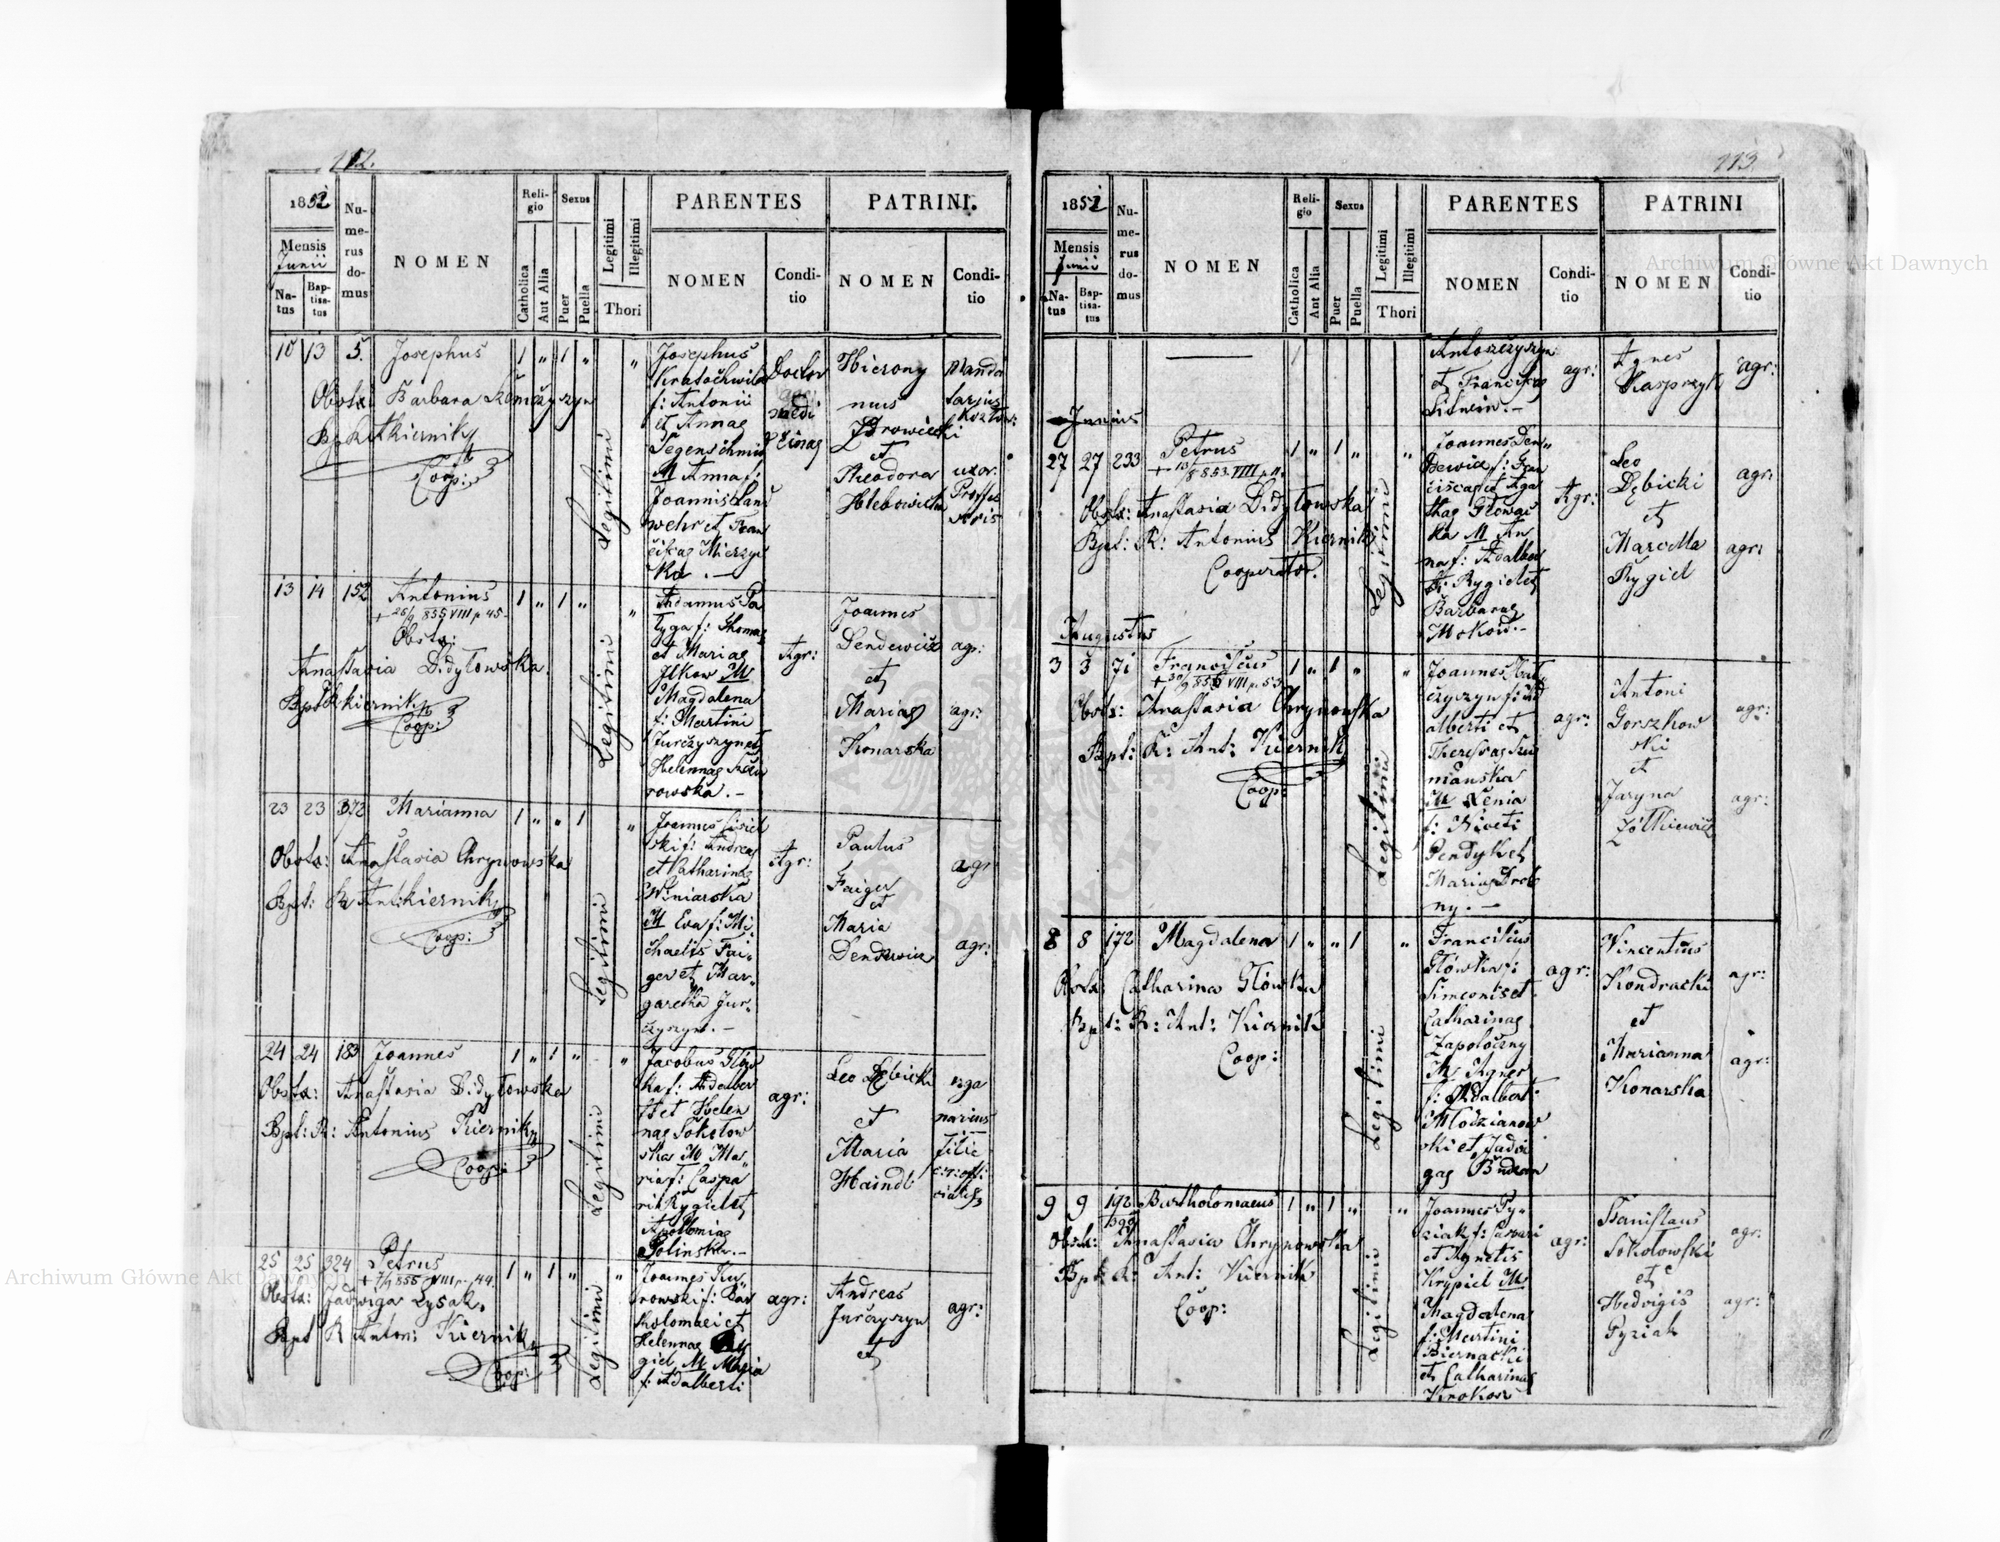 112.
1852
Mensis
Junii
Na-
tus
Bap-
tisa-
tus
Nu-
me-
rus
do-
mus
NOMEN
Reli-
gio
Catholica
Aut Alia
Sexus
Puer
Puella
Legitimi
Illegitimi
Thori
PARENTES
NOMEN
Condi-
tio
PATRINI.
NOMEN
Condi-
tio
10 13 5. Josephus 1 " 1 " "
Obstx: Barbara
Bpt R Ant Kiernik
Coop:
Legitimi
Josephus
Kratochwila
f: Antonii
et Annae
M Anna f:
Joannis Land
wehr et Fran
ciscae Mierzyń
ka. –
Doctor
medi
cinae
Hierony
mus
Browicki
et
Theodora
Hlebowicka
Manda
tarius
uxor
Profes
soris
13 14 152 Antonius 1 " 1 " "
+ 25/9 855 VIII p 45-
Obstx:
Anastasia Didyłowska
Bpt R Kiernik
Coop:
Legitimi
Adamus Pa
łyga f: Thomae
et Mariae
Ilkow M
Magdalena
f: Martini
Jurczyszyn et
Helenae
rowska. –
Agr:
Joannes
Dendewicz
et
Maria
Konarska
agr:
agr:
23 23 372 Marianna 1 " " 1 "
Obstx: Anastasia Chrynowska
Bpt: R Ant: Kiernik
Coop:
Legitimi
Joannes
ski f: Andreae
et Catharinae
Winiarska
M Eva f: Mi-
chaelis Fai-
ger et Mar-
garetha Jur-
czyszyn. –
Agr:
Paulus
Faiger
et
Maria
Dendewicz
agr:
agr:
24 24 183 Joannes 1 " 1 " "
Obstx: Anastasia Didyłowska
Bpt: R: Antonius Kiernik
Coop:
Legitimi
Jacobus Głow
ka f: Adalber
ti et Helen
nae Sokołow
ska M Ma-
ria f: Caspa
ri Rygiel et
Apolloniae
Polinska. –
agr:
Leo Dębicki
et
Maria
Haindl
filia
25 25 324 Petrus 1 " 1 " "
+ 7/9 855 VIII p. 44.
Obstx: Jadwiga Łysak.
Bpt R Anton: Kiernik
Coop:
Legitimi
Joannes Ku-
rowski f: Bar
tholomaei et
Helennae
giel M Maria
f: Adalberti
agr:
Andreas
Jurczyszyn
et
agr:
113.
1852
Mensis
Junii
Na-
tus
Bap-
tisa-
tus
Nu-
me-
rus
do-
mus
NOMEN
Reli-
gio
Catholica
Aut Alia
Sexus
Puer
Puella
Legitimi
Illegitimi
Thori
PARENTES
NOMEN
Condi-
tio
PATRINI
NOMEN
Condi-
tio
Antoszczyszyn
et Franciscae
Litwin. –
agr:
Agnes
Kasprzyk
agr:
Junius
27 27 233 Petrus 1 " 1 " "
+ 13/8 853 VIII p 11
Obstx: Anastasia Didyłowska
Bpt: R: Antonius Kiernik
Cooperator.
Legitimi
Joannes Den-
dewicz f: Fran
cisca et Aga
thae Głowac
ka M An
na f: Adalber
ti Rygiel et
Barbarae
Mokow. –
Agr:
Leo
Dębicki
et
Marcella
Rygiel
agr:
agr:
Augustus
3 3 71 Franciscus 1 " 1 " "
+ 30/9 855 VIII p 53
Obstx: Anastasia Chrynowska
Bpt: R: Ant: Kiernik
Coop:
Legitimi
Joannes
czyszyn f: Ad
alberti et
Theresae Szu
mianska
M Xenia
f: Niceti
Pendyk et
Mariae Drob
ny. –
agr:
Antoni
Gorszkow
ski
et
Jaryna
Żółkiewicz
agr:
agr:
8 8 172 Magdalena 1 " " 1 "
Obstx: Catharina Głowka
Bpt: R: Ant: Kiernik
Coop:
Legitimi
Franciscus
Głowka f:
Simeonis et
Catharinae
Zapołoczny
M Agnes
f: Adalberti
Młodzianow
ski et Jadwi
gae Budzan
agr:
Vincentius
Kondracki
et
Marianna
Konarska
agr:
agr:
9 9 192 Bartholomaeus 1 " 1 " "
Obstx: Anastasia Chrynowska
Bpt R: Ant: Kiernik
Coop:
Legitimi
Joannes Py-
ziak f: Caspari
et Agnetis
Krypiel M
Magdalena
f: Martini
Biernacki
et Catharinae
Krokosz
agr:
Stanislaus
Sokołowski
et
Hedvigis
Pyziak
agr:
agr:
Archiwum Główne Akt Dawnych
Archiwum Główne Akt Dawnych